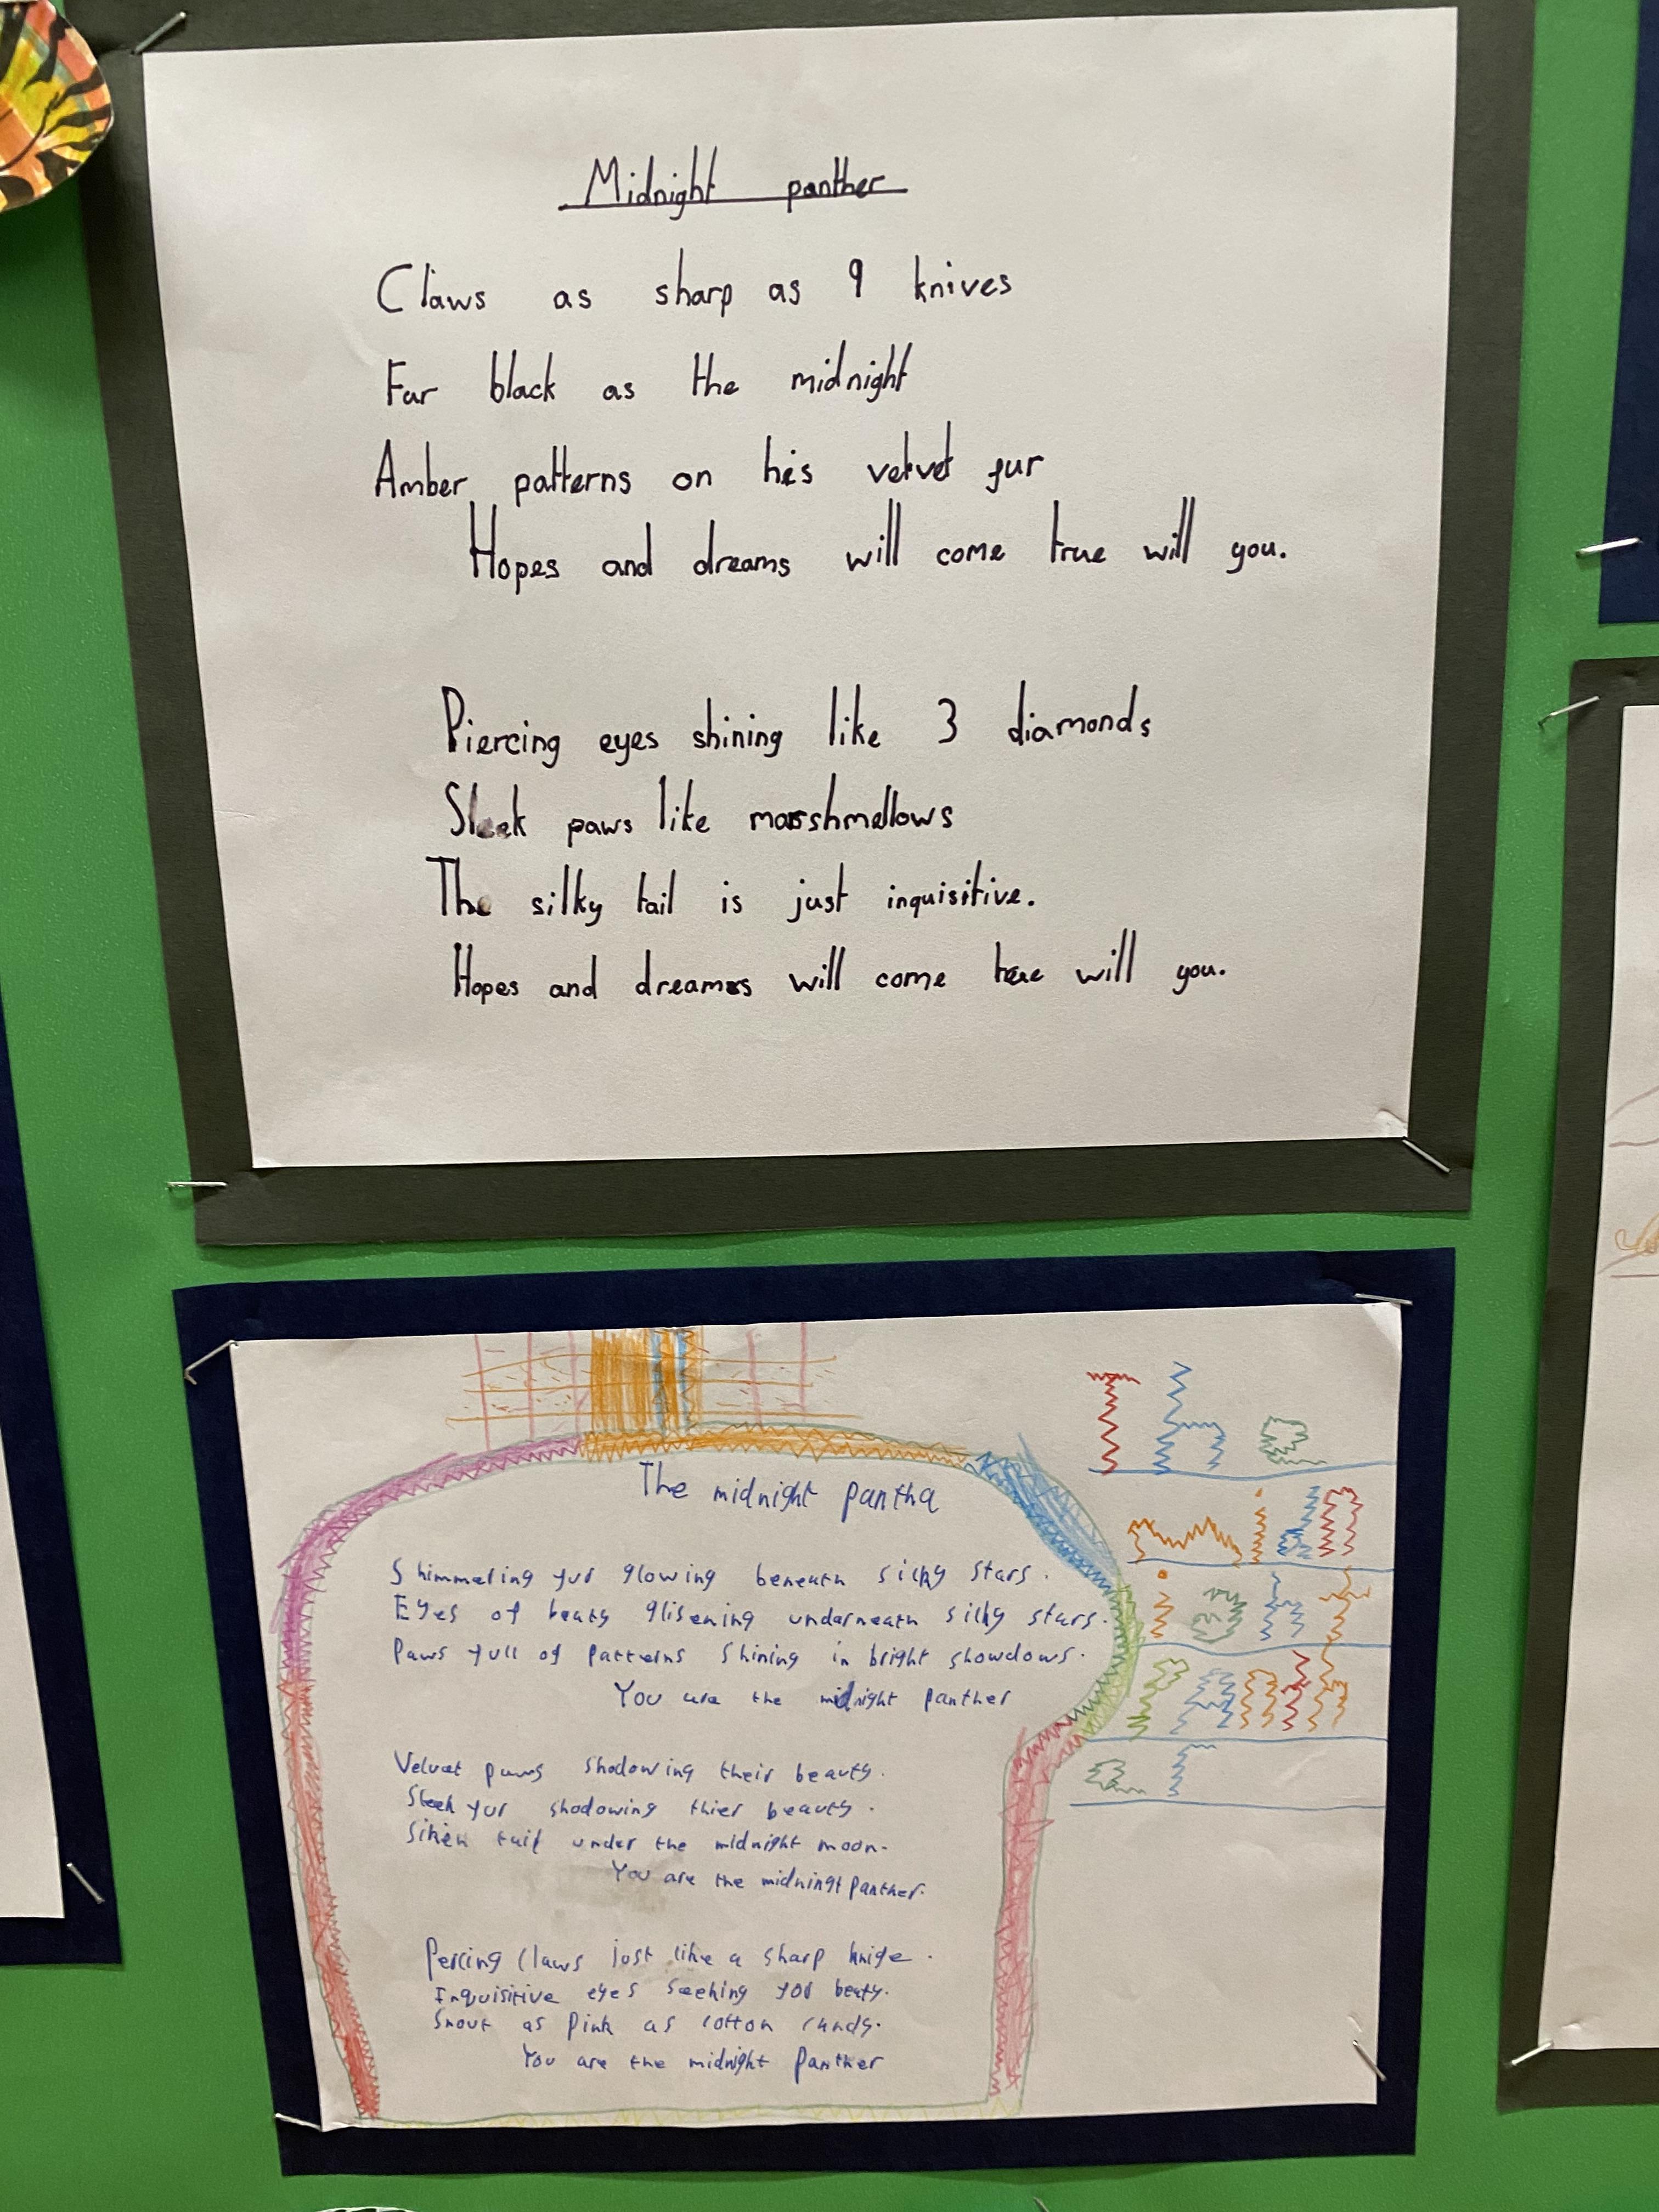 Midnight panther
Claws as sharp as 9 knives
Fur black as the midnight
Amber patterns on his velvet fur
Hopes and dreams will come true will you.
Piercing eyes shining like 3 diamonds
Sleek paws like marshmellows
The silky tail is just inquisitive.
Hopes and dreams will come true will you.
The midnight pantha
Shimmeling fur glowing beneath silky stars.
Eyes of beaty glisening underneath silky stars.
Paws full of patterns Shining in bright showdows.
You are the midnight panther
Velvet paws shadowing their beauty.
Sleek fur shodowing thier beauty.
Silken tail under the midnight moon.
You are the midningt panther.
Percing claws just like a sharp knife.
Inquisitive eyes seeking for beaty.
Snout as pink as cotton candy.
You are the midnight panther
The
midn
ight
panth
er